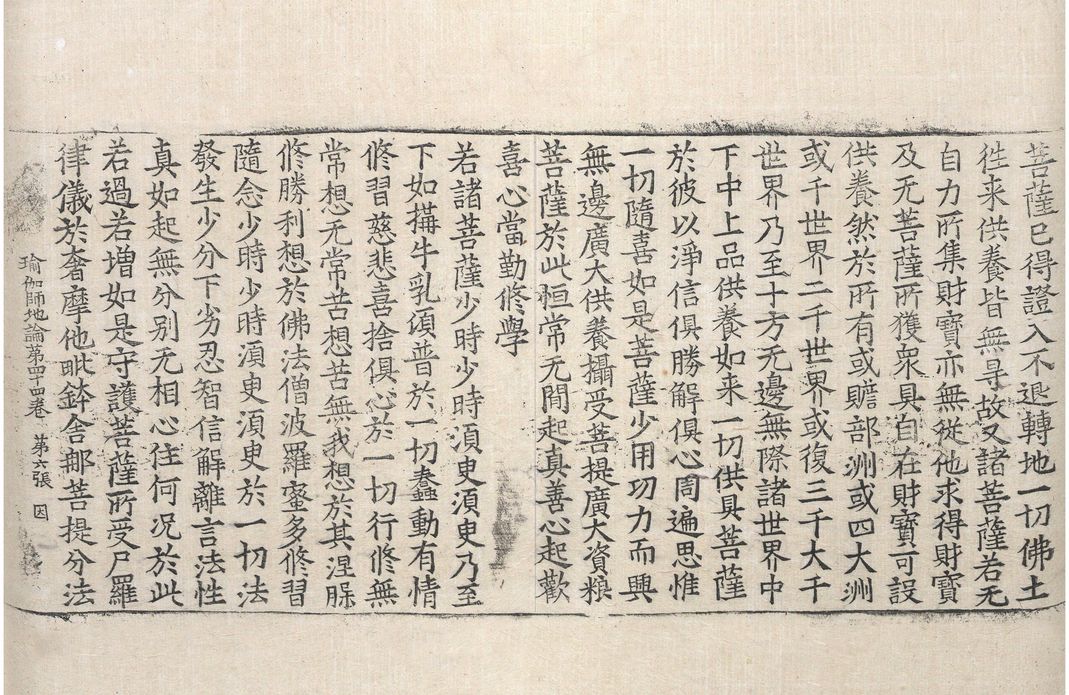 菩薩已得證入不退轉地一切佛土
徃来供養皆無㝵故又諸菩薩若无
自力所集財寶亦無從他求得財寶
及无菩薩所獲衆具自在財寶可設
供養然於所有或贍部洲或四大洲
或千世界二千世界或復三千大千
世界乃至十方无邊無際諸世界中
下中上品供養如来一切供具菩薩
於彼以淨信俱勝解俱心周遍思惟
一切隨喜如是菩薩少用功力而興
無邊廣大供養攝受菩提廣大資粮
菩薩於此恒常无間起真善心起歡
喜心當勤修學
若諸菩薩少時少時須臾須臾乃至
下如搆牛乳頃普於一切蠢動有情
修習慈悲喜捨俱心於一切行修無
常想无常苦想苦無我想於其涅槃
修勝利想於佛法僧波羅蜜多修習
隨念少時少時須臾須臾於一切法
發生少分下劣忍智信解離言法性
真如起無分别无相心住何况於此
若過若增如是守護菩薩所受尸羅
律儀於奢摩他毗鉢舍那菩提分法
瑜伽師地論第四十四卷 第六張 因